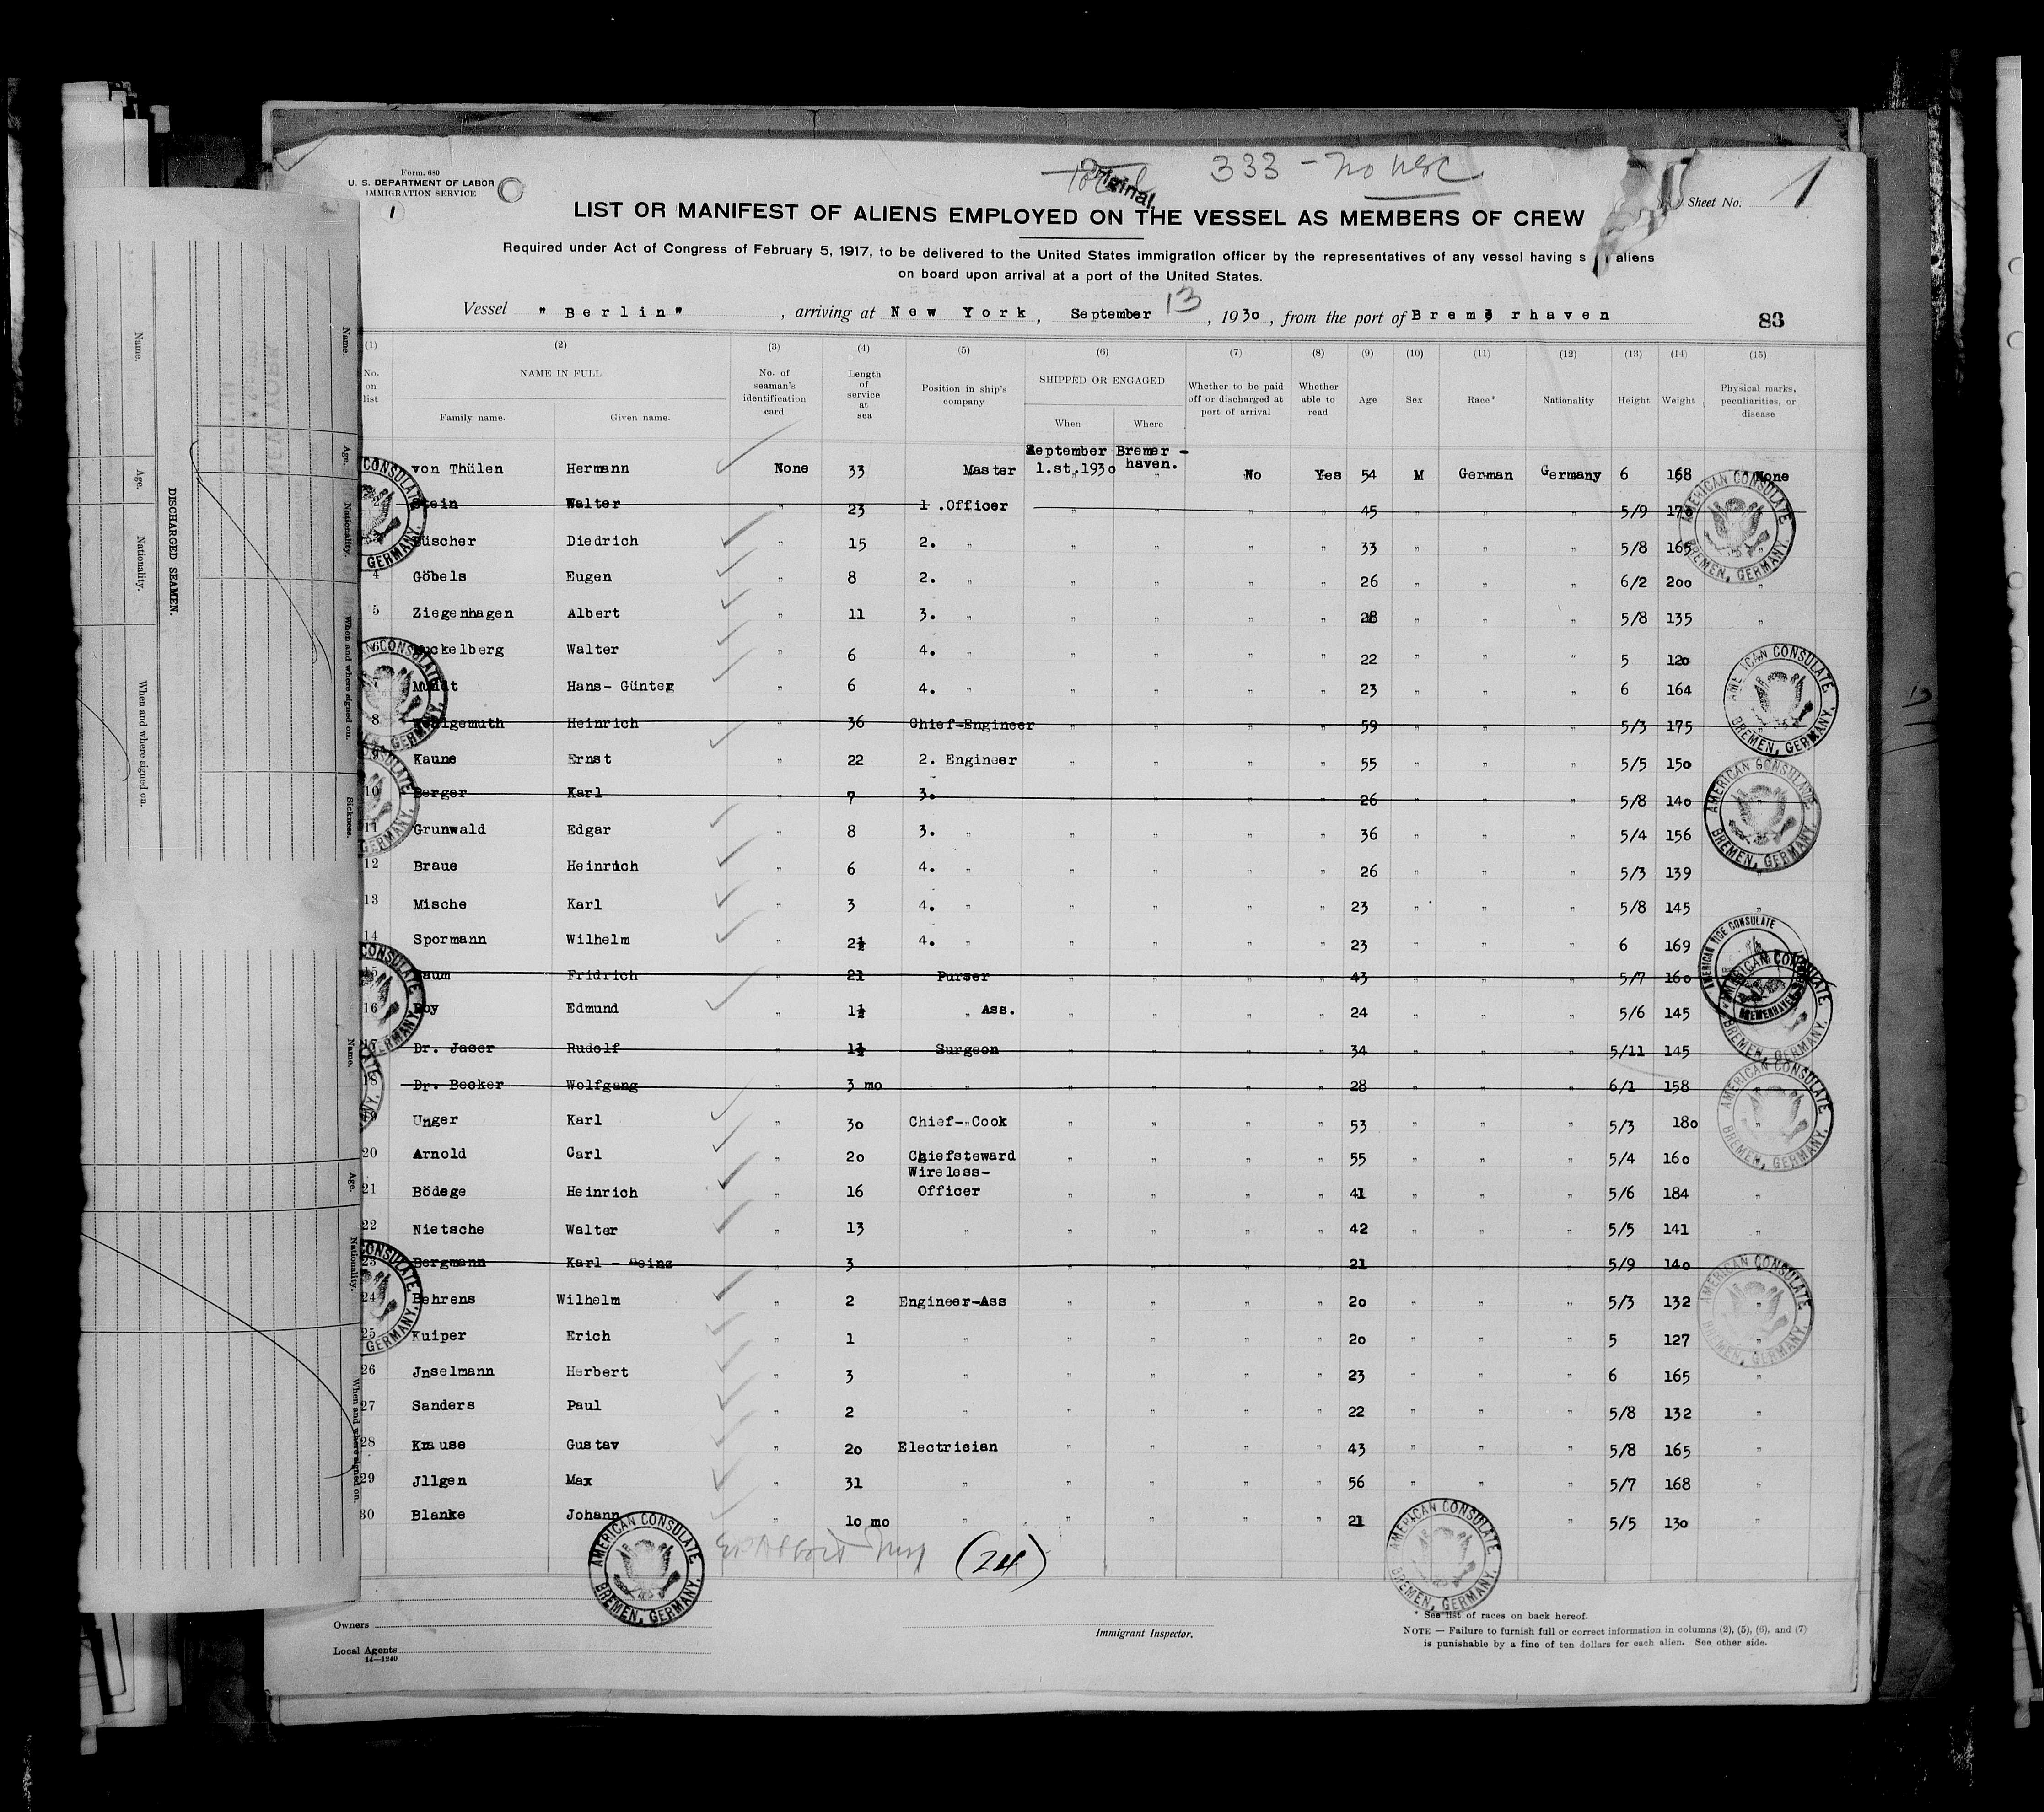 Form. 680
U. S. DEPARTMENT OF LABOR
IMMIGRATION SERVICE
1
Original
333 - No
Sheet No. 1
LIST OR MANIFEST OF ALIENS EMPLOYED ON THE VESSEL AS MEMBERS OF CREW
Required under Act of Congress of February 5, 1917, to be delivered to the United States immigration officer by the representatives of any vessel having s aliens
on board upon arrival at a port of the United States.
Vessel "Berlin" , arriving at New York , September 13 , 1930 , from the port of Bremerhaven
83
(1) (2) (3) (4) (5) (6) (7) (8) (9) (10) (11) (12) (13) (14) (15)
No. on list NAME IN FULL Family name. Given name. No. of seaman's identification card Length of service at sea Position in ship's company SHIPPED OR ENGAGED When Where Whether to be paid off or discharged at port of arrival Whether able to read Age Sex Race* Nationality Height Weight Physical marks, peculiarities, or disease
von Thülen Hermann None 33 Master September 1.st.1930 Bremer-haven. No Yes 54 M German Germany 6 168 None
2 Stein Walter " 23 1 .Officer " " " " 45 " " " 5/9 170
Büscher Diedrich " 15 2. " " " " " 33 " " " 5/8 165 "
4 Göbels Eugen " 8 2. " " " " " 26 " " " 6/2 200 "
5 Ziegenhagen Albert " 11 3. " " " " " 28 " " " 5/8 135 "
6 Walter " 6 4. " " " " " 22 " " " 5 120
7 Mundt Hans- Günter " 6 4. " " " " " 23 " " " 6 164
8 Wohlgemuth Heinrich " 36 Chief-Engineer " " " " 59 " " " 5/3 175
9 Kaune Ernst " 22 2. Engineer " " " " 55 " " " 5/5 150
10 Berger Karl " 7 3. " " " " 26 " " " 5/8 140 "
11 Grunwald Edgar " 8 3. " " " " " 36 " " " 5/4 156
12 Braue Heinrich " 6 4. " " " " " 26 " " " 5/3 139 "
13 Mische Karl " 3 4. " " " " " 23 " " " 5/8 145 "
14 Spormann Wilhelm " 2½ 4. " " " " " 23 " " " 6 169
15 Baum Fridrich " 21 Purser " " " " 43 " " " 5/7 160
16 Edmund " 1½ " Ass. " " " " 24 " " " 5/6 145
17 Dr. Jaser Rudolf " 1½ Surgeon " " " " 34 " " " 5/11 145
18 Dr. Becker Wolfgang " 3 mo " " " " " 28 " " " 6/1 158
19 Unger Karl " 30 Chief-"Cook " " " " 53 " " " 5/3 180 "
20 Arnold Carl " 20 Chiefsteward " " " " 55 " " " 5/4 160
21 Bödege Heinrich " 16 Wireless-Officer " " " " 41 " " " 5/6 184 "
22 Nietsche Walter " 13 " " " " " 42 " " " 5/5 141 "
23 Bergmann Karl - Heinz " 3 " " " " " 21 " " " 5/9 140 "
24 Behrens Wilhelm " 2 Engineer-Ass " " " " 20 " " " 5/3 132
25 Kuiper Erich " 1 " " " " " 20 " " " 5 127 "
26 Jnselmann Herbert " 3 " " " " " 23 " " " 6 165 "
27 Sanders Paul " 2 " " " " " 22 " " " 5/8 132 "
28 Krause Gustav " 20 Electrician " " " " 43 " " " 5/8 165 "
29 Jllgen Max " 31 " " " " " 56 " " " 5/7 168 "
30 Blanke Johann " 10 mo " " " " " 21 " " 5/5 130 "
(24)
AMERICAN CONSULATE BREMEN, GERMANY.
AMERICAN CONSULATE BREMEN, GERMANY.
AMERICAN CONSULATE BREMEN, GERMANY.
AMERICAN CONSULATE BREMEN, GERMANY.
AMERICAN VICE CONSULATE BREMERHAVEN
AMERICAN CONSULATE BREMEN, GERMANY.
AMERICAN CONSULATE BREMEN, GERMANY.
AMERICAN CONSULATE BREMEN, GERMANY.
Owners
Local Agents
14—1240
Immigrant Inspector.
* See list of races on back hereof.
NOTE — Failure to furnish full or correct information in columns (2), (5), (6), and (7)
is punishable by a fine of ten dollars for each alien. See other side.
DISCHARGED SEAMEN.
Name. Age. Nationality. When and where signed on.
Name. Age. Nationality. When and where signed on. Sickness.
Name. Age. Nationality. When and where signed on.